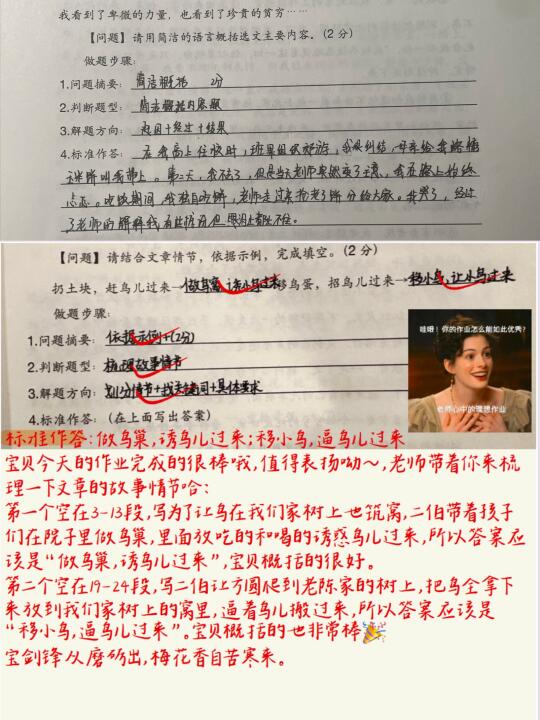 我看到了卑微的力量，也看到了珍贵的贫穷……
【问题】请用简洁的语言概括选文主要内容。(2分)
做题步骤：
1.问题摘要：简洁概括 2分
2.判断题型：简洁概括内容题
3.解题方向：起因+经过+结果
4.标准作答：在我高上住校时，班里组织郊游，我很纠结，母亲给我烙
饼叫我带上。第二天，我去了，但是当天老师突然改了主意，我在路上
忐忑。吃饭期间，我独自吃饼，老师走过来抢老了饼分给大家。我哭了，经过
了老师的解释我
【问题】请结合文章情节，依据示例，完成填空。(2分)
扔土块，赶鸟儿过来→做鸟窝，诱小鸟过来 鸟蛋，招鸟儿过来→移小鸟，让小鸟过来
做题步骤：
1.问题摘要：依据示例+(2分)
2.判断题型：梳理故事情节
3.解题方向：划分情节+找关键词+具体要求
4.标准作答：(在上面写出答案)
哇哦！你的作业怎么能如此优秀？
老师心中的理想作业
标准作答：做鸟巢，诱鸟儿过来；移小鸟，逼鸟儿过来
宝贝今天的作业完成的很棒哦，值得表扬呦～，老师带着你来梳
理一下文章的故事情节哈：
第一个空在3-13段，写为了让鸟在我们家树上也筑窝，二伯带着孩子
们在院子里做鸟巢，里面放吃的和喝的诱惑鸟儿过来，所以答案应
该是“做鸟巢，诱鸟儿过来”，宝贝概括的很好。
第二个空在19-24段，写二伯让方圆爬到老陈家的树上，把鸟全拿下
来放到我们家树上的窝里，逼着鸟儿搬过来，所以答案应该是
“移小鸟，逼鸟儿过来”。宝贝概括的也非常棒🎉
宝剑锋从磨砺出，梅花香自苦寒来。